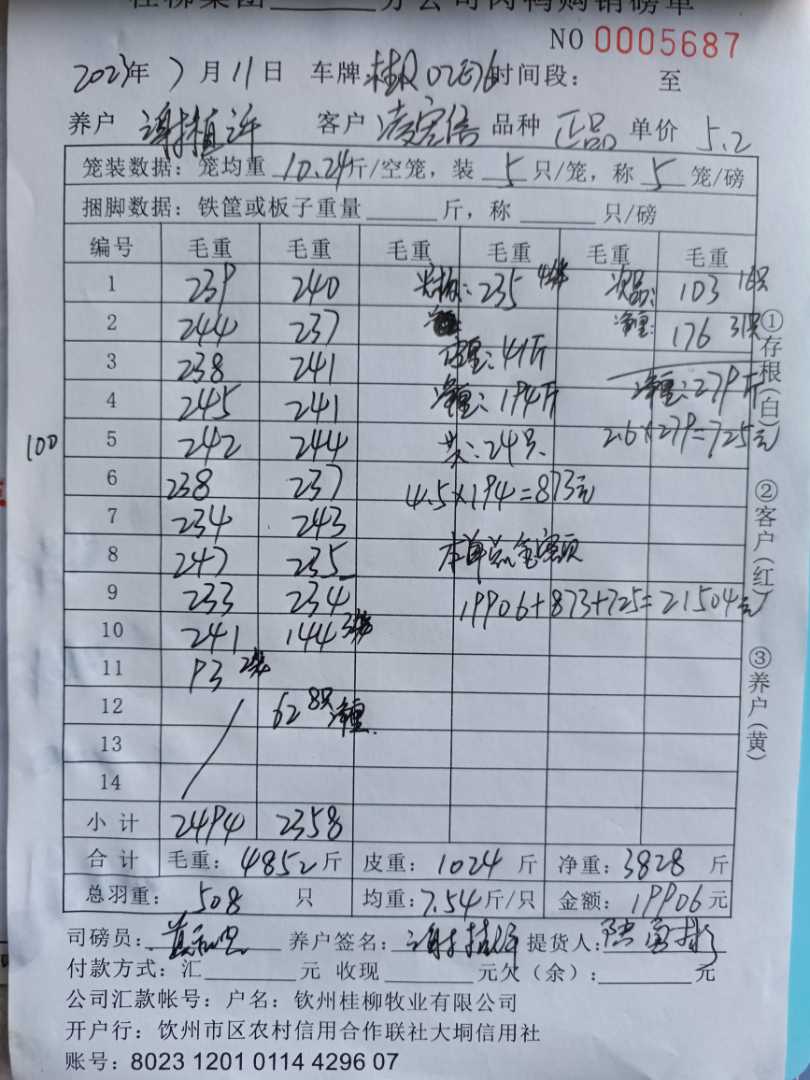 桂柳集团 分公司肉鸭购销磅单
NO 0005687
2023年 7月11日 车牌: 时间段: 至
养户 谢植许 客户 凌宏信 品种 正品 单价 5.2
笼装数据: 笼均重 10.24斤/空笼, 装 5 只/笼, 称 5 笼/磅
捆脚数据: 铁筐或板子重量 斤, 称 只/磅
编号 毛重 毛重 毛重 毛重 毛重 毛重
1 239 240 : 235 4 次品: 103 16只
2 244 237 净重: 176 31只
3 238 241 皮重: 41斤
4 245 241 净重: 194斤 净重: 279斤
100 5 242 244 共: 24只. 2.6×279=725元
6 238 237 4.5×194=873元
7 234 243
8 247 235 本单总金额
9 233 234 19906+873+725=21504元
10 241 144 3
11 93 2
12 62 8只 净重.
13
14
小计 2494 2358
合计 毛重: 4852斤 皮重: 1024 斤 净重: 3828 斤
总羽重: 508 只 均重: 7.54斤/只 金额: 19906元
司磅员: 养户签名: 提货人:
付款方式: 汇 元 收现 元欠(余): 元
公司汇款帐号: 户名: 钦州桂柳牧业有限公司
开户行: 饮州市区农村信用合作联社大垌信用社
账号: 8023 1201 0114 4296 07
①存根(白) ②客户(红) ③养户(黄)